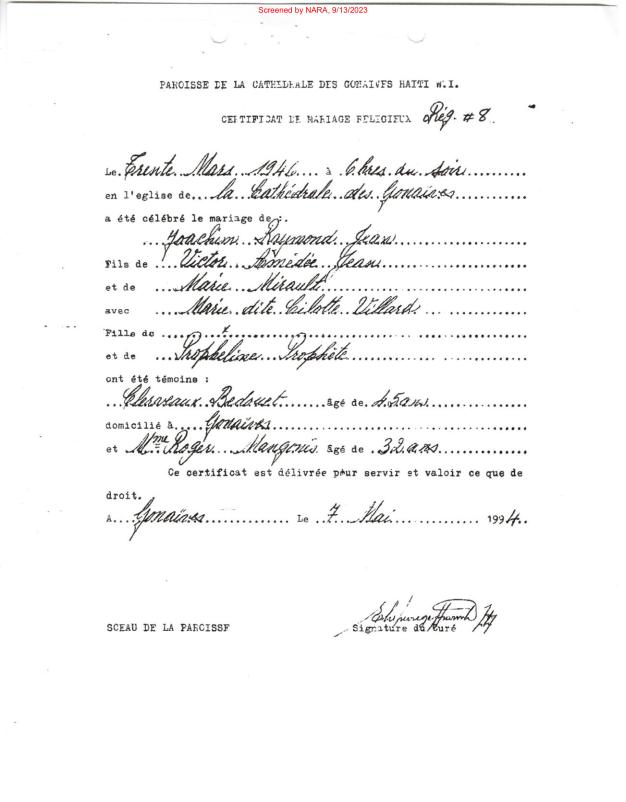 Screened by NARA, 9/13/2023
PAROISSE DE LA CATHEDRALE DES GONAIVES HAITI W.I.
CERTIFICAT DE MARIAGE RELIGIEUX Rég. # 8.
Le. Trente Mars 1946 .... à 6 hres du soir..........
en l'eglise de... la Cathédrale des Gonaives............
a été célébré le mariage de :.
.... Joachim Raymond Jean.......................
Fils de .... Victor Amédée Jean.........................
et de .... Marie Mirault..................................
avec .... Marie dite Cilotte Villard... .............
Fille de ..............................................
et de .... Propheline Prophète..............................
ont été témoine :
... Cleraveaux Bedouet........ âgé de. 45 ans.................
domicilié à..... Gonaïves............................................
et Mme Roger Mangonès âgé de .32 ans...............
Ce certificat est délivrée pour servir et valoir ce que de
droit.
A.... Gonaïves.............. Le .. 7 Mai............... 1994..
SCEAU DE LA PAROISSE
Signature du Curé